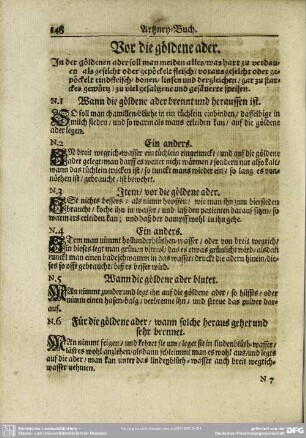 148 Artzney-Buch.
Vor die göldene ader.
In der göldenen ader soll man meiden alles / was hart zu verdau-
en als geselcht oder gepöckelt fleisch / voraus geselcht oder ge-
pöckelt rindfleisch / bonen / linsen und dergleichen / gar zu star-
ckes gewürtz / zu viel gesaltzene und gesäuerte speisen.
N.1 Wann die göldene ader brennt und heraussen ist.
SO soll man chamillen-blühe in ein tüchlein einbinden / dasselbige in
milch sieden / und so warm als mans erleiden kan / auf die göldene
ader legen.
N.2 Ein anders.
breit wegrich-wasser ein tüchlein eingetunckt / und auf die göldene
ader gelegt / man darff es weiter nicht wärmen / sondern nur also kalt /
wann das tüchlein trucken ist / so tunckt mans wieder ein / so lang es von-
nöthen ist / gebraucht / ist bewehrt.
N.3 Item / vor die göldene ader.
Ist nichts bessers / als nimm hopffen / wie man ihn zum biersieden
gebraucht / koche ihn in wasser / und laß den patienten darauf sitzen / so
warm ers erleiden kan / und daß der dampff wohl in ihn gehe.
N.4 Ein anders.
Item man nimmt hollunderblüthen-wasser / oder von breit wegrich /
ein
kan man einen badeschwamm in das wasser / druck die adern hinein / die-
ses so offt gebraucht / biß es besser wird.
N.5 Wann die göldene ader blutet.
MAn nimmt zunder und lege ihn auf die göldene ader / so hilffts / oder
nimm einen hasen-balg / verbrenne ihn / und streue das pulver dar-
auf.
N.6 Für die göldene ader / wann solche heraus gehet und
sehr brennet.
MAn nimmt feigen / und kehret sie um / leget sie in lindenblüth-wasser /
läst es wohl angiehen / alsdann schleimmt man es wohl aus / und legts
auf die ader / man kan unter das lindenblüth-wasser auch breit wegrich-
wasser nehmen.
N 7